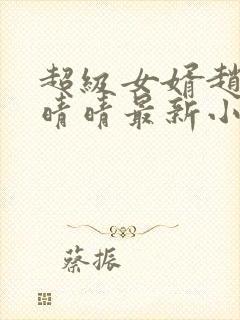 超级女婿趙
晴晴最新小
蔡振